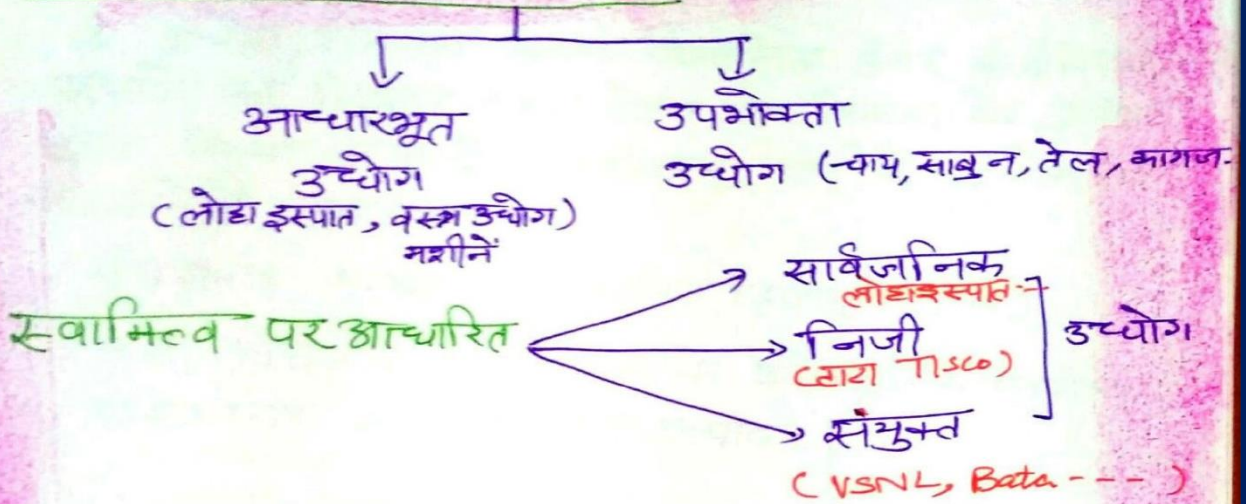 आधारभूत
उद्योग
(लोहा इस्पात, वस्त्र उद्योग)
मशीनें
उपभोक्ता
उद्योग (चाय, साबुन, तेल, कागज-
स्वामित्व पर आधारित
सार्वजनिक
लोहा इस्पात--
निजी
(टाटा TISCO)
संयुक्त
(VSNL, Bata ----)
उद्योग